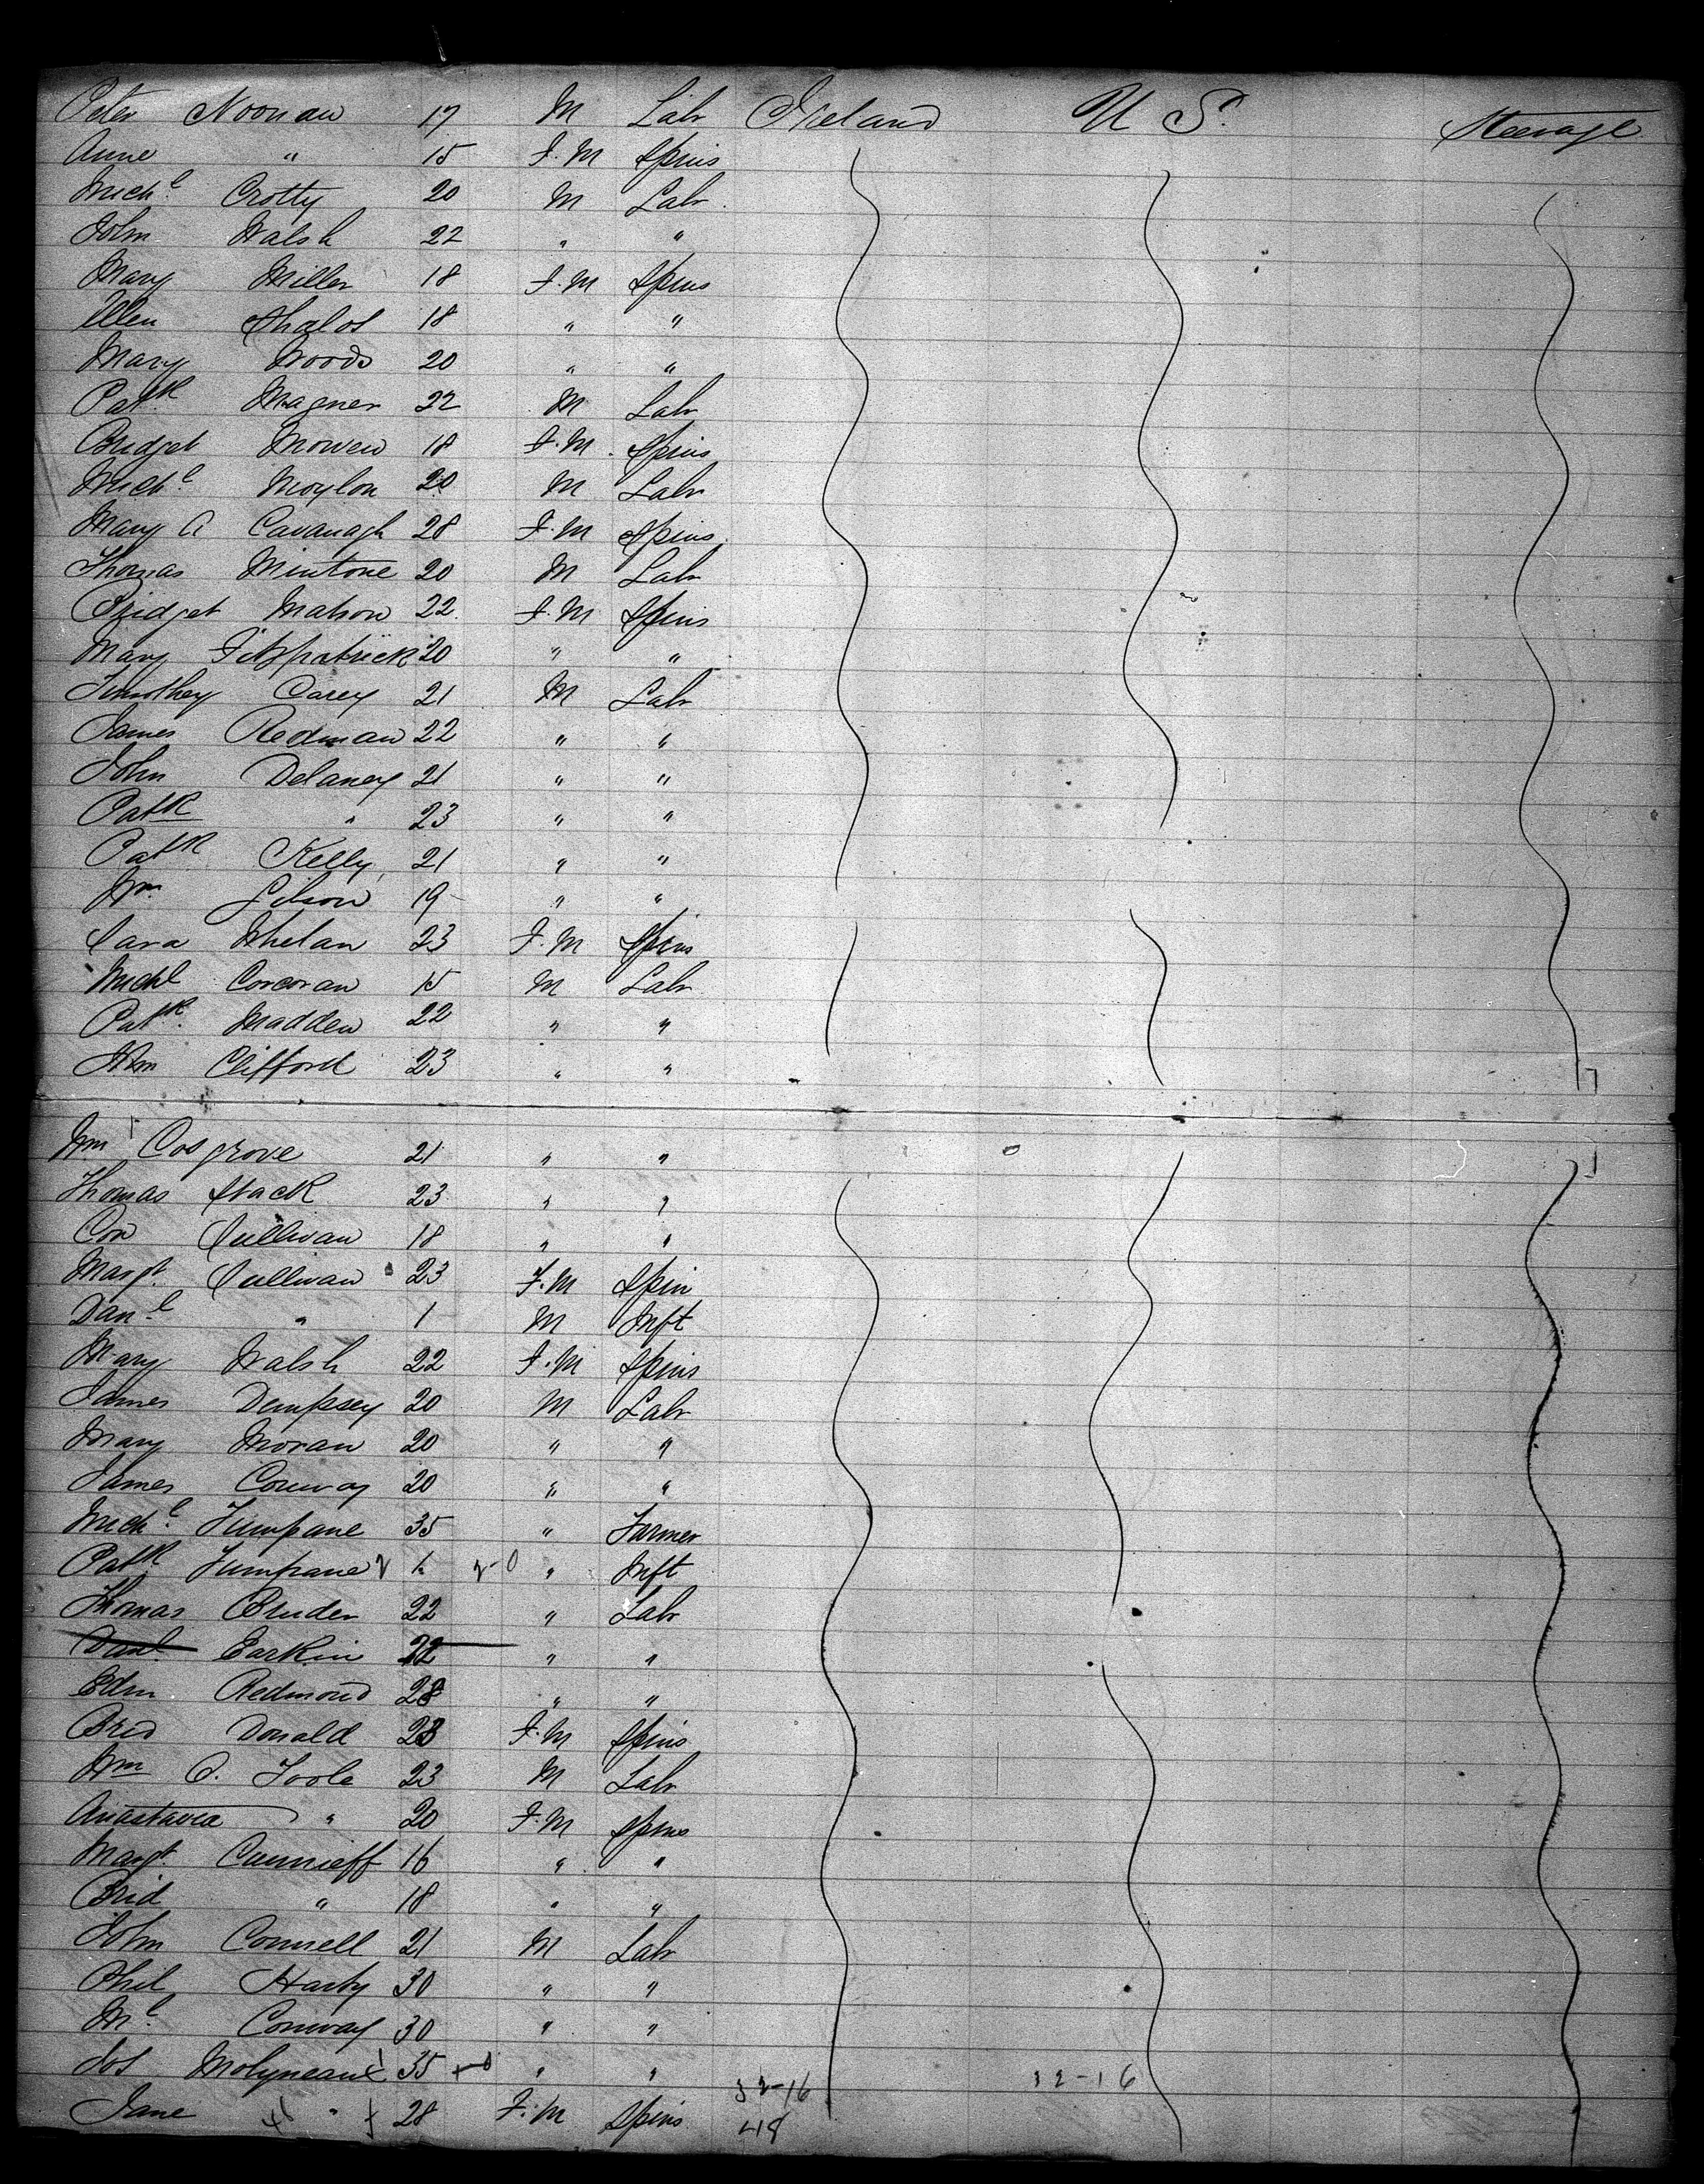 Peter Noonan 17 M Labr Ireland U S. Steerage
Anne " 15 F.M Spins
Michl Crotty 20 M Labr
John Walsh 22 " "
Mary Miller 18 F.M Spins
Ellen 18 " "
Mary Woods 20 " "
Patk Magner 22 M Labr
Bridget 18 F.M Spins
Michl Moylon 20 M Labr
Mary A Cavanagh 28 F.M Spins
Thomas Mintone 20 M Labr
Bridget Mahon 22 F.M Spins
Mary Fitzpatrick 20 " "
Timothey Carey 21 M Labr
James Redman 22 " "
John Delaney 21 " "
Patk " 23 " "
Patk Kelly 21 " "
Wm 19 " "
Sara Whelan 23 F.M Spins
Michl Corcoran 15 M Labr
Patk Madden 22 " "
Clifford 23 " "
Wm Cosgrove 21 " "
Thomas Stack 23 " "
Con Sullivan 18 " "
Margt Sullivan 23 F.M Spin
Danl " 1 M Inft
Mary Walsh 22 F.M Spins
James Dempsey 20 M Labr
Mary Moran 20 " "
James Conway 20 " "
Michl Tumpane 35 " Farmer
Patk Tumpane 1 " Inft
Thomas Bruder 22 " Labr
Danl Earkin 22 " "
Edm Redmond 28 " "
Brid Donald 23 F.M Spins
Wm O. Toole 23 M Labr
Anastasia " 20 F.M Spins
Margt Cunnieff 16 " "
Brid " 18 " "
John Connell 21 M Labr
Phil Harty 30 " "
Ml Conway 30 " "
Jos Molyneaux 35 " " 32-16 32-16
Jane " 28 F.M Spins 48